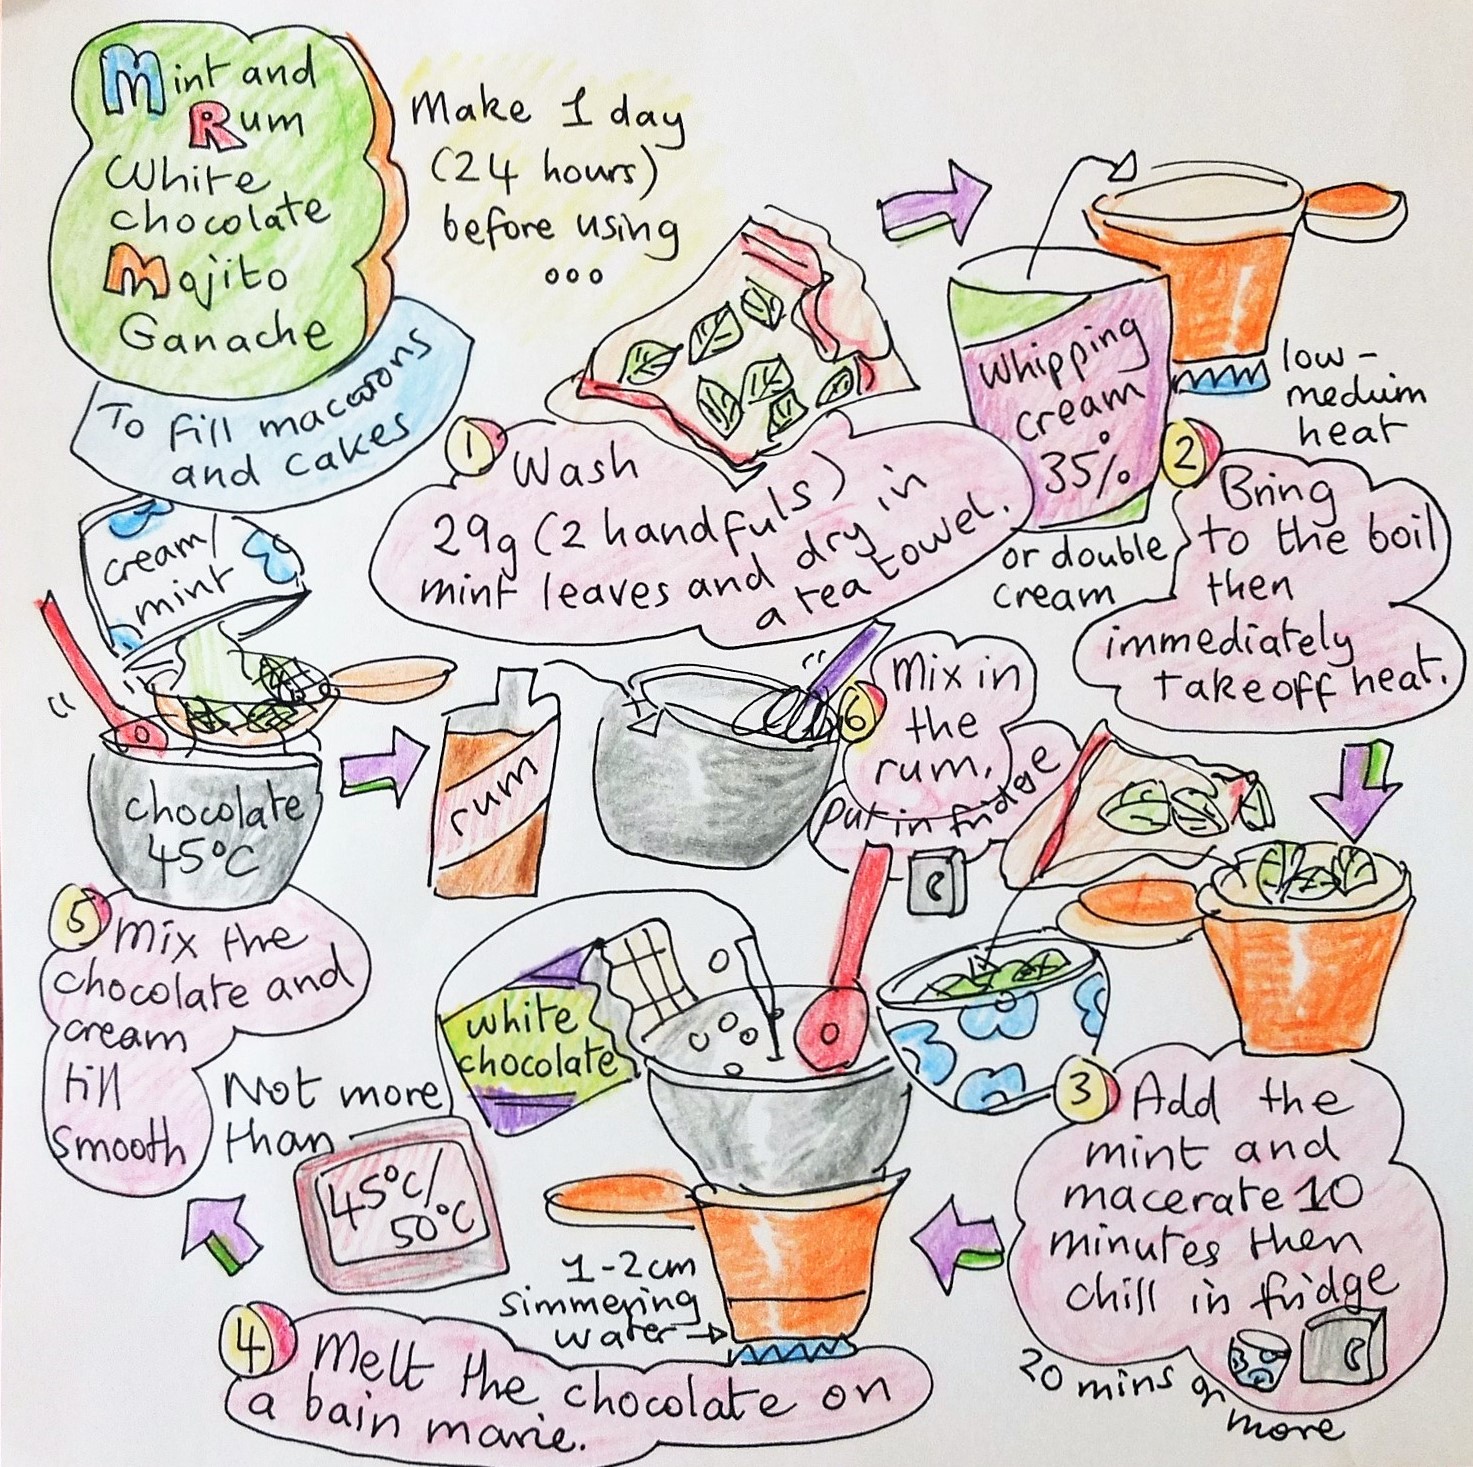 Mint and
Rum
White
chocolate
Mojito
Ganache
To fill macarons
and cakes
Make 1 day
(24 hours)
before using
...
1
Wash
29g (2 handfuls)
mint leaves and dry in
a tea towel.
Whipping
cream
35%
or double
cream
low-
medium
heat
2
Bring
to the boil
then
immediately
take off heat.
3
Add the
mint and
macerate 10
minutes then
chill in fridge
20 mins or
more
white
chocolate
1-2cm
simmering
water
4
Melt the chocolate on
a bain marie.
Not more
than
45°C/
50°C
cream/
mint
chocolate
45°C
5
Mix the
chocolate and
cream
till
smooth
rum
6
Mix in
the
rum.
put in fridge